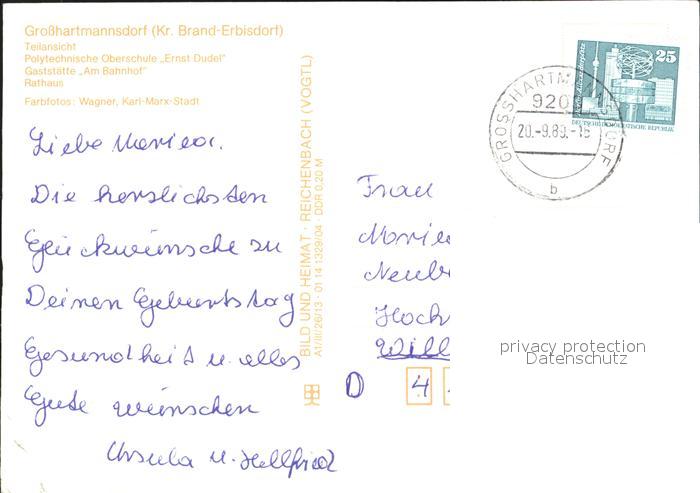 Großhartmannsdorf (Kr. Brand-Erbisdorf)
Teilansicht
Polytechnische Oberschule „Ernst Dudel"
Gaststätte „Am Bahnhof"
Rathaus
Farbfotos: Wagner, Karl-Marx-Stadt
Liebe Marica.
Die herzlichsten
Glückwünsche zu
Deinen Geburtstag
Gesundheit u. alles
Gute wünschen
Ursula u. Hellfried
BILD UND HEIMAT · REICHENBACH (VOGTL)
A1/III/26/13 · 01 14 1329/04 · DDR 0,20 M
25
DEUTSCHE DEMOKRATISCHE REPUBLIK
GROSSHARTMANNSDORF
920
20.-9.89.-16
b
Frau
Neub
Hoch
Will
D 4
privacy protection
Datenschutz